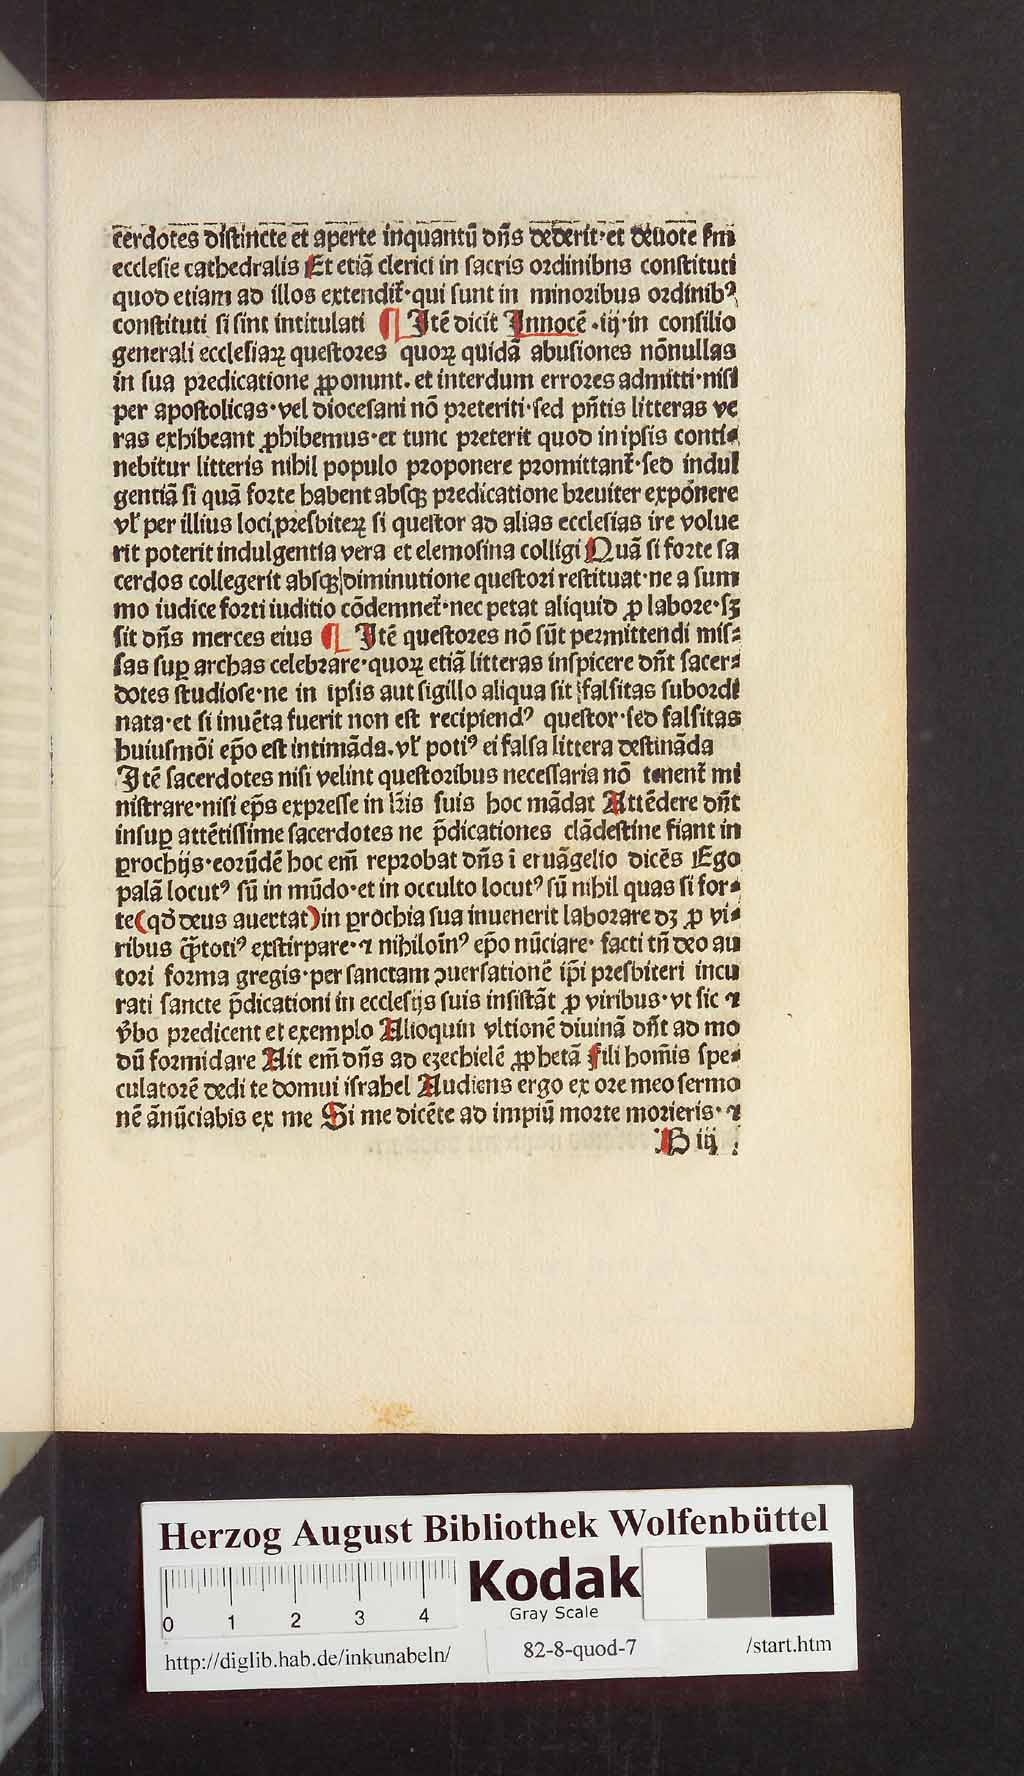 cerdotes distincte et aperte inquantū dn̄s dederit·et deuote ẜm
ecclesie cathedralis Et etiā clerici in sacris ordinibns constituti
quod etiam ad illos extendit᷑·qui sunt in minoribus ordinibꝰ
constituti si sint intitulati ¶ Itē dicit Innocē ·iij·in consilio
generali ecclesiaꝝ questores quoꝝ quidā abusiones nōnullas
in sua predicatione ꝓponunt. et interdum errores admitti·nisi
per apostolicas·vel diocesani nō preteriti·sed pn̄tis litteras ve
ras exhibeant ꝓhibemus·et tunc preterit quod in ipsis conti⸗
nebitur litteris nihil populo proponere promittant᷑·sed indul
gentiā si quā forte habent absqꝫ predicatione breuiter exponere
vl̓ per illius loci presbiteꝝ si questor ad alias ecclesias ire volue
rit poterit indulgentia vera et elemosina colligi Quā si forte sa
cerdos collegerit absqꝫ diminutione questori restituat·ne a sum
mo iudice forti iuditio cōdemnet᷑·nec petat aliquid ꝓ labore·sꝫ
sit dn̄s merces eius ¶ Itē questores nō sūt permittendi mis⸗
sas suꝑ archas celebrare·quoꝝ etiā litteras inspicere dn̄t sacer⸗
dotes studiose·ne in ipsis aut sigillo aliqua sit falsitas subordi
nata·et si inuēta fuerit non est recipiendꝰ questor·sed falsitas
huiusmōi ep̄o est intimāda.vl̓ potiꝰ ei falsa littera destināda
Itē sacerdotes nisi velint questoribus necessaria nō tenent᷑ mi
nistrare·nisi ep̄s expresse in lr̄is suis hoc mādat Attēdere dn̄t
insuꝑ attētissime sacerdotes ne p̄dicationes clādestine fiant in
ꝑrochijs·eorūdē hoc em̄ reprobat dn̄s ī eruāgelio dicēs Ego
palā locutꝰ sū in mūdo·et in occulto locutꝰ sū nihil quas si for⸗
te(qd̄ deus auertat)in ꝑrochia sua inuenerit laborare dꝫ ꝓ vi⸗
ribus q̄ꝫtotiꝰ exstirpare·⁊ nihiloīnꝰ ep̄o nūciare· facti tn̄ deo au
tori forma gregis·per sanctam ꝯuersationē ip̄i presbiteri incu
rati sancte p̄dicationi in ecclesijs suis insistāt ꝓ viribus·vt sic ⁊
v̓bo predicent et exemplo Alioquin vltionē diuinā dn̄t ad mo
dū formidare Ait em̄ dn̄s ad ezechielē ꝓphetā fili homīs spe⸗
culatorē dedi te domui israhel Audiens ergo ex ore meo sermo
nē ānūciabis ex me Si me dicēte ad impiū morte morieris· ⁊
B iij
Herzog August Bibliothek Wolfenbüttel
0 1 2 3 4
Kodak
Gray Scale
http://diglib.hab.de/inkunabeln/
82-8-quod-7
/start.htm